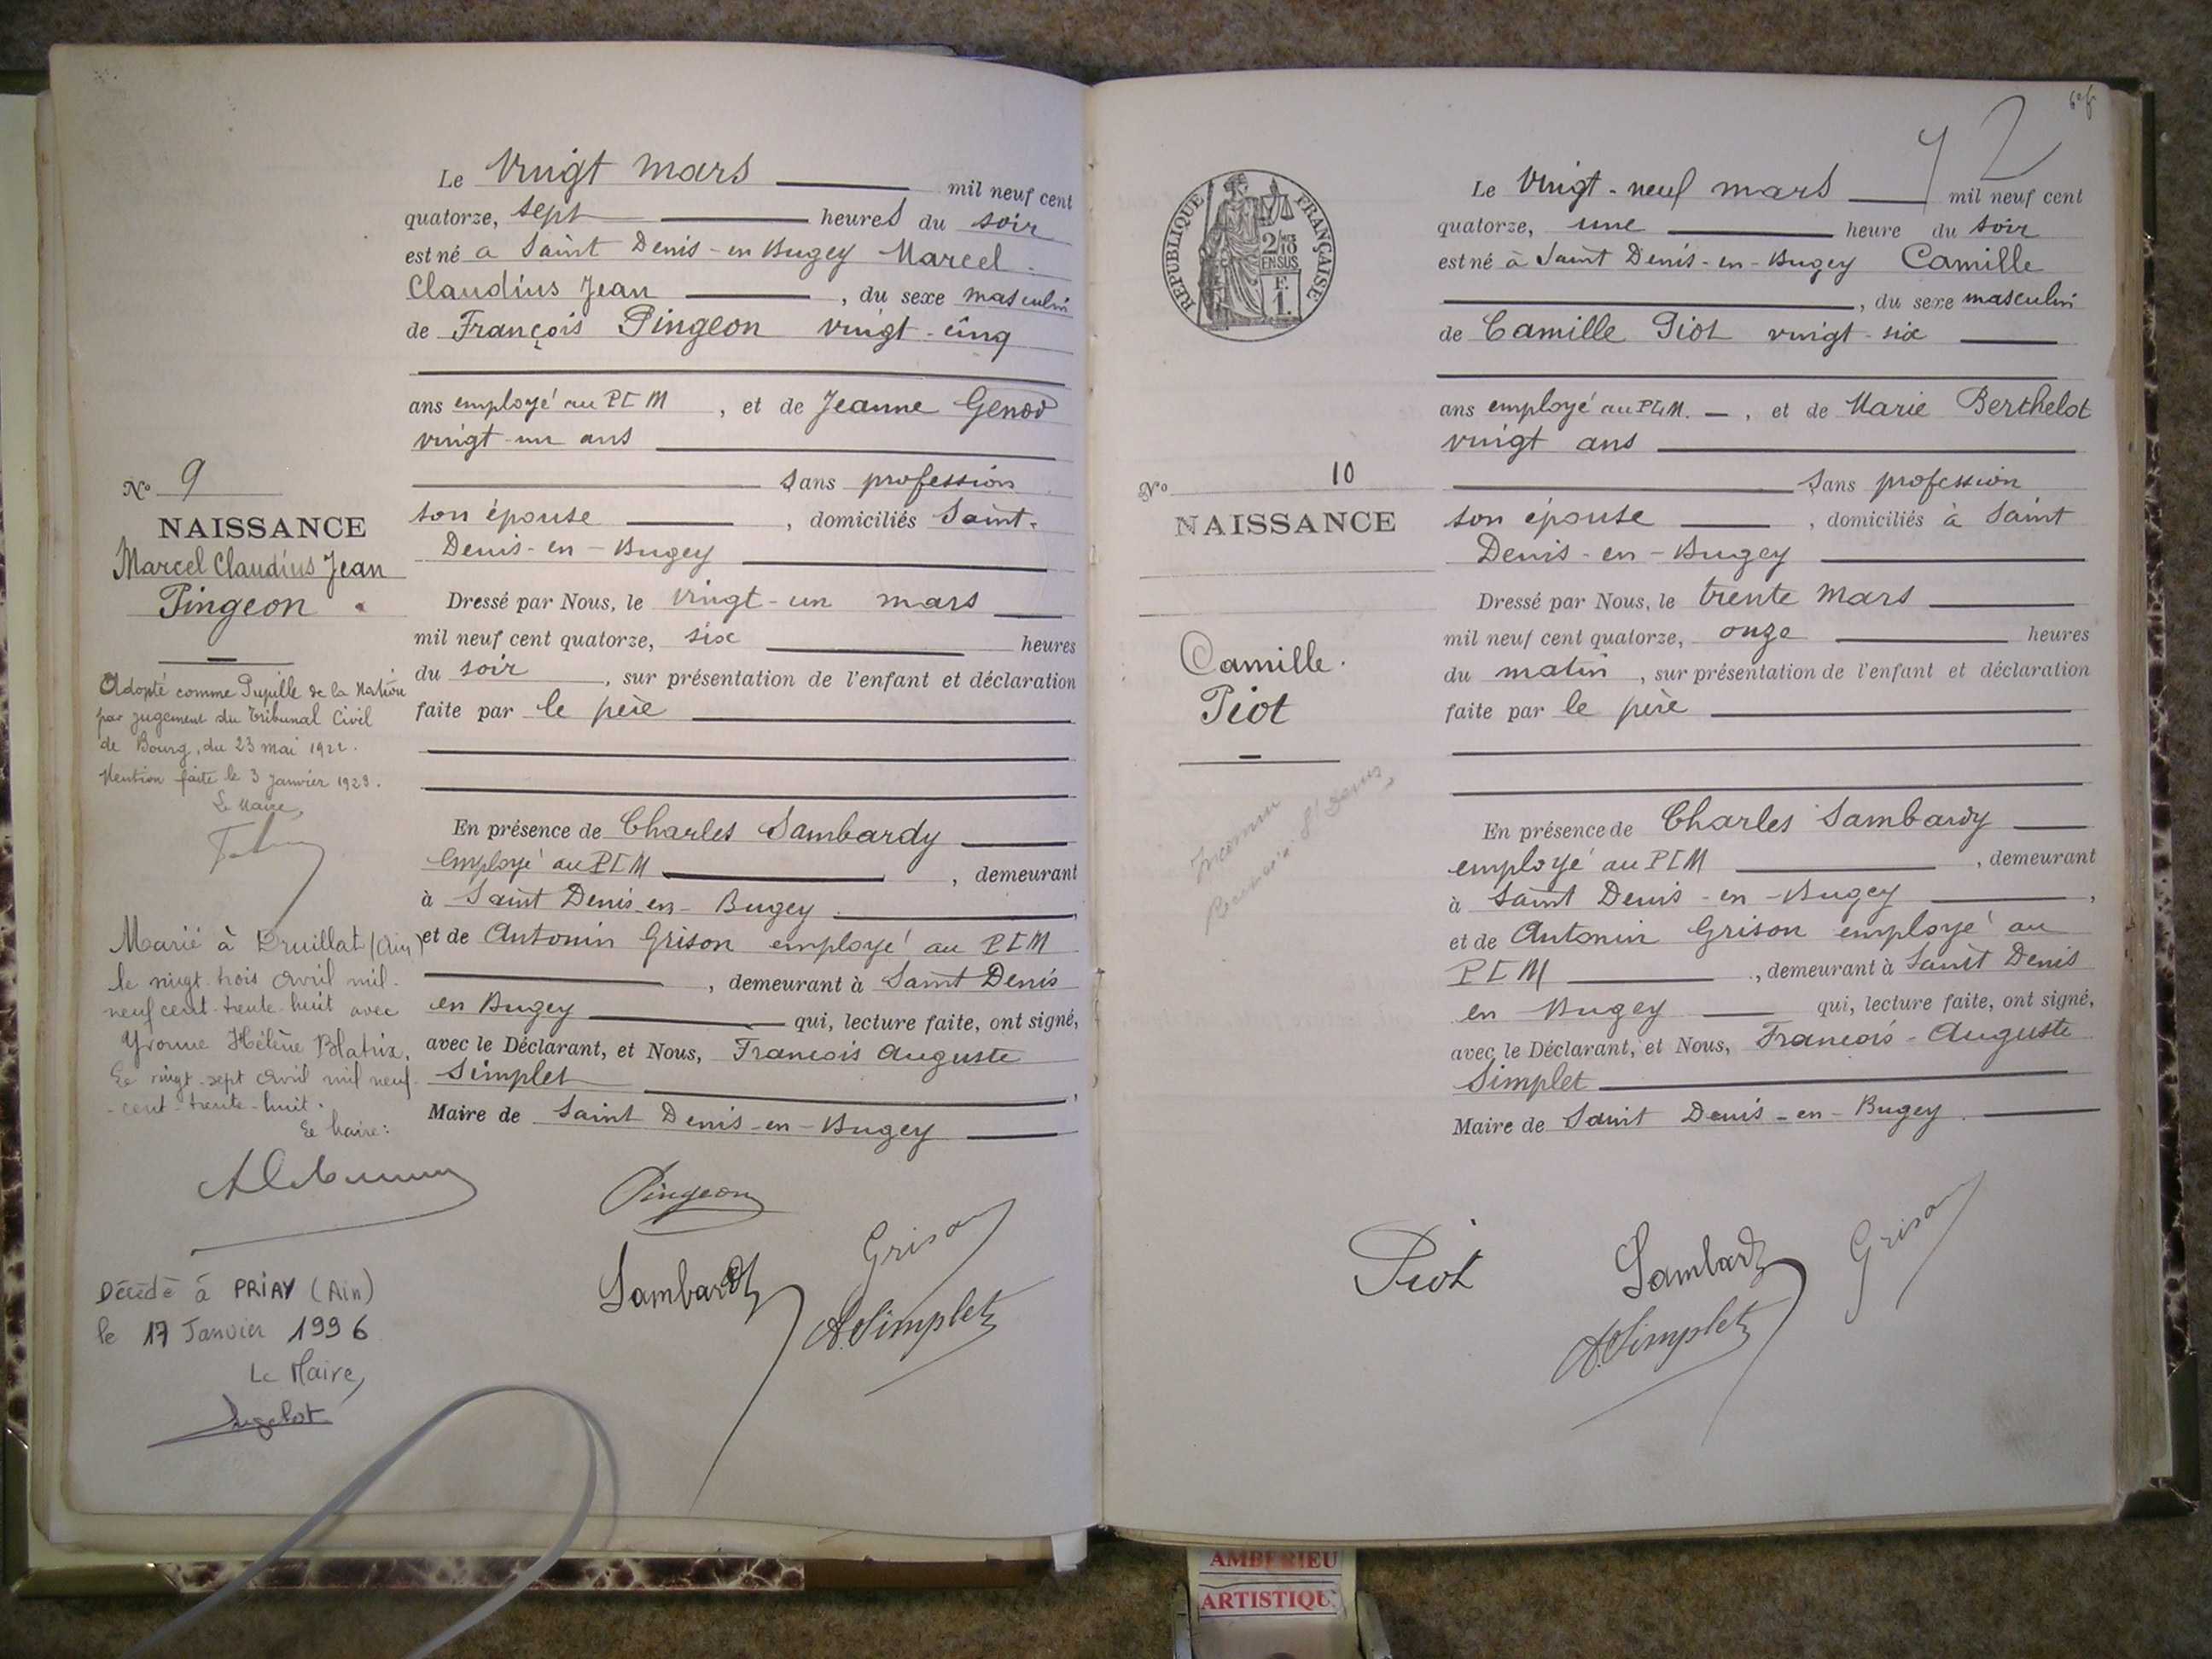 Le vingt mars mil neuf cent
quatorze, sept heures du soir
est né a Saint Denis-en Bugey Marcel
Claudius Jean , du sexe masculin
de François Pingeon vingt-cinq
ans employé au PLM , et de Jeanne Genod
vingt-un ans
sans profession
son épouse , domiciliés Saint-
Denis-en-Bugey
Dressé par Nous, le vingt-un mars
mil neuf cent quatorze, six heures
du soir , sur présentation de l'enfant et déclaration
faite par le père
En présence de Charles Sambardy
employé au PLM , demeurant
à Saint Denis-en-Bugey ,
et de Antonin Grison employé au PLM
, demeurant à Saint Denis
en Bugey qui, lecture faite, ont signé,
avec le Déclarant, et Nous, François Auguste
Simplet ,
Maire de Saint Denis-en-Bugey
Pingeon
Grison
Sambardy
A. Simplet
No 9
NAISSANCE
Marcel Claudius Jean
Pingeon
Adopté comme Pupille de la Nation
par jugement du Tribunal Civil
de Bourg, du 23 mai 1922.
Mention faite le 3 Janvier 1923.
Le Maire,
Marié à Druillat (Ain)
le vingt-trois avril mil-
neuf cent-trente-huit avec
Yvonne Hélène Blatrix.
Le vingt-sept avril mil neuf-
-cent-trente-huit.
Le Maire:
Décédé à PRIAY (Ain)
le 17 Janvier 1996
Le Maire,
REPUBLIQUE FRANÇAISE
2/10
EN SUS
F.
1.
Le vingt-neuf mars mil neuf cent
quatorze, une heure du soir
est né à Saint Denis-en-Bugey Camille
, du sexe masculin
de Camille Piot vingt-six
ans employé au PLM. , et de Marie Berthelot
vingt ans
sans profession
son épouse , domiciliés à Saint
Denis-en-Bugey
Dressé par Nous, le trente mars
mil neuf cent quatorze, onze heures
du matin , sur présentation de l'enfant et déclaration
faite par le père
En présence de Charles Sambardy
employé au PLM , demeurant
à Saint Denis-en-Bugey ,
et de Antonin Grison employé au
PLM , demeurant à Saint Denis
en Bugey qui, lecture faite, ont signé,
avec le Déclarant, et Nous, François-Auguste
Simplet
Maire de Saint Denis-en-Bugey.
Piot
Sambardy
Grison
A. Simplet
No 10
NAISSANCE
Camille
Piot
Inconnu
St Denis
AMBERIEU
ARTISTIQU